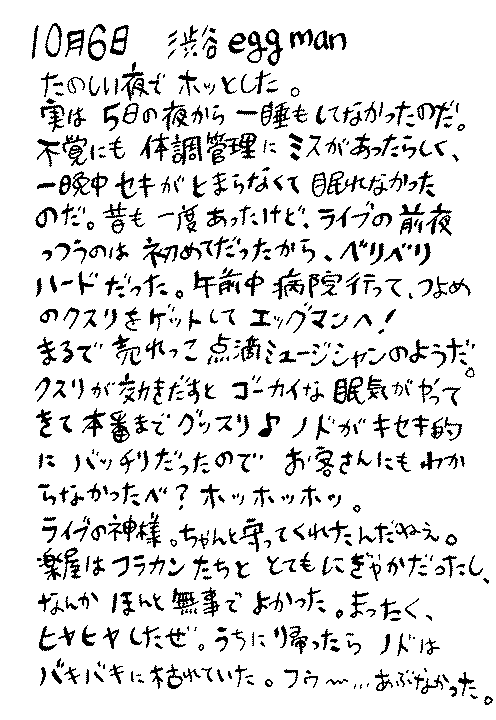 10月6日 渋谷 eggman
たのしい夜で ホッとした。
実は 5日の夜から 一睡もしてなかったのだ。
不覚にも 体調管理に ミスがあったらしく、
一晩中 セキが とまらなくて 眠れなかった
のだ。昔も 一度あったけど、ライブの 前夜
っつうのは 初めてだったから、ベリベリ
ハードだった。午前中 病院行って、つよめ
のクスリを ゲットして エッグマンへ!
まるで 売れっこ 点滴ミュージシャンのようだ。
クスリが 効きだすと ゴーカイな 眠気が やって
きて 本番まで グッスリ♪ ノドが キセキ的
に バッチリだったので お客さんにも わか
らなかったべ? ホッホッホッ。
ライブの神様。ちゃんと守ってくれたんだねぇ。
楽屋は フラカン たちと とても にぎやかだったし、
なんか ほんと 無事で よかった。まったく、
ヒヤヒヤしたぜ。うちに帰ったら ノドは
バキバキに枯れていた。フゥ〜…あぶなかった。